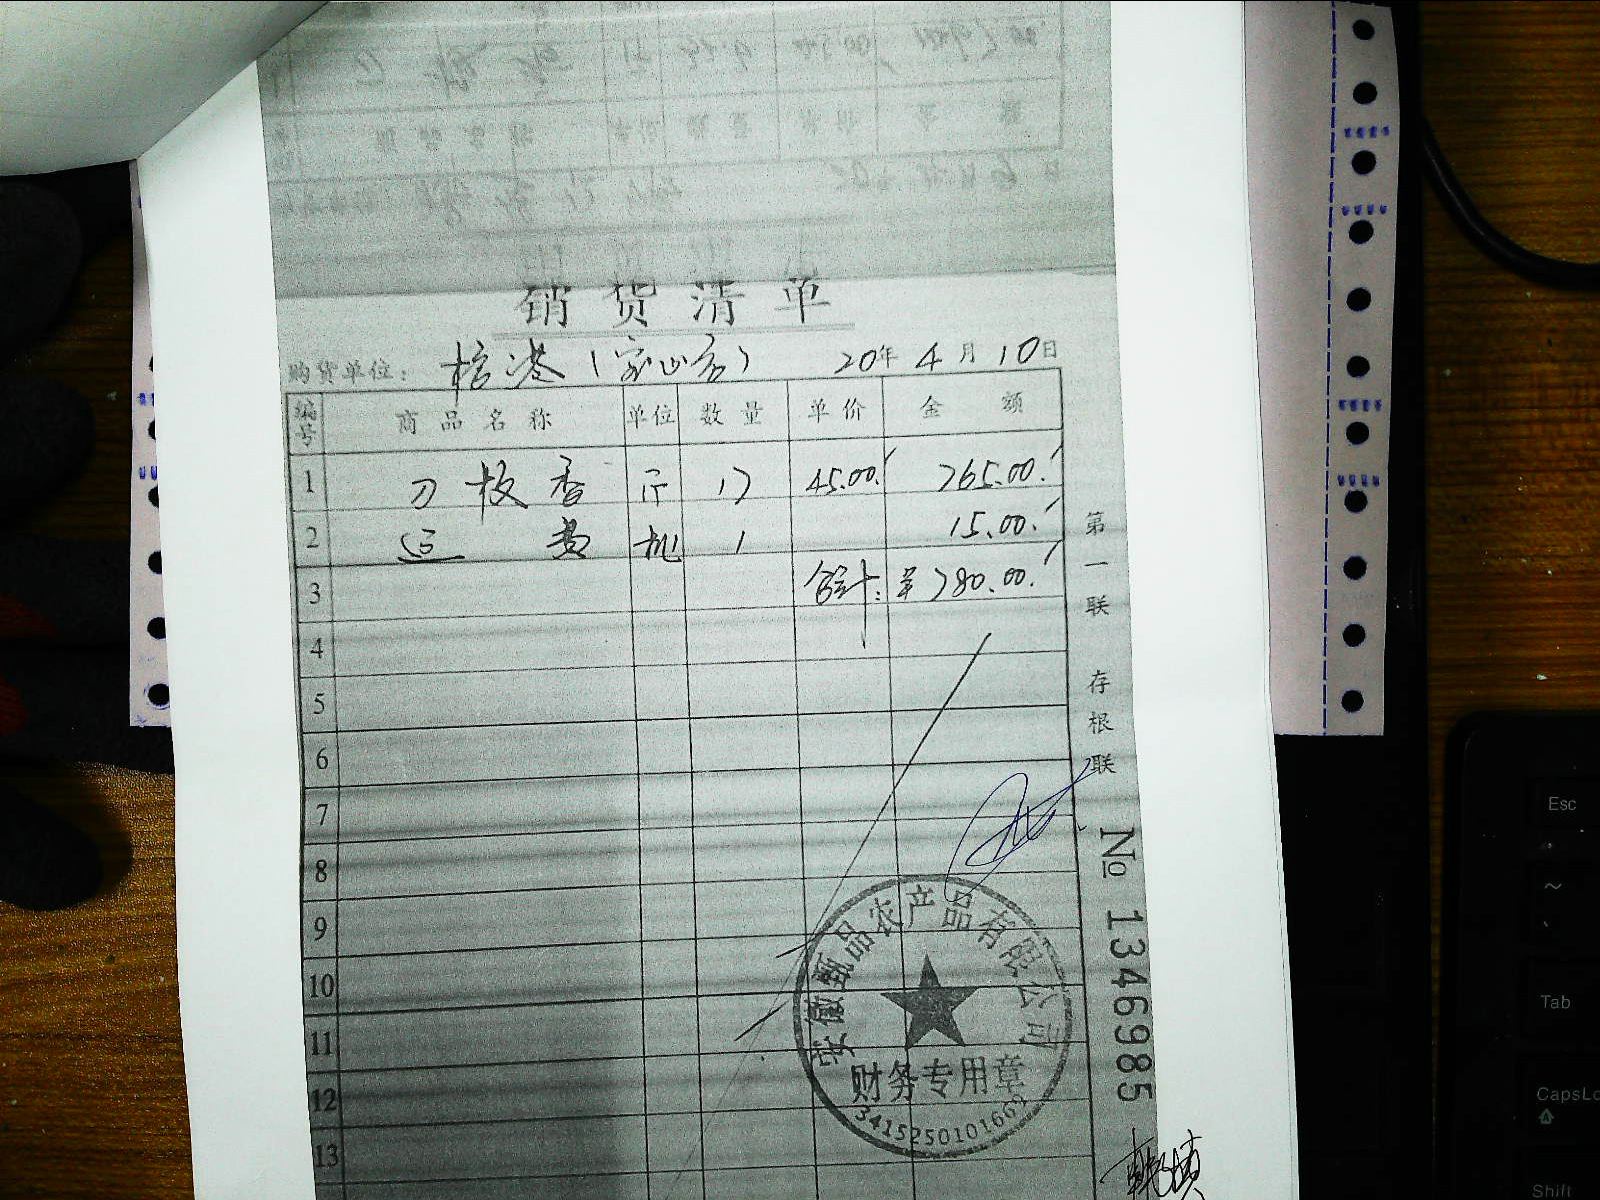 销货清单
购货单位： 20年 4月 10日
编号 商品名称 单位 数量 单价 金额
1 刀板香 斤 17 45.00 765.00
2 运费 批 1 15.00
3 合计: ¥780.00
4
5
6
7
8
9
10
11
12
13
第一联 存根联
№ 1346985
安徽甄品农产品有限公司
财务专用章
3415250101669
Esc
~
Tab
CapsLo
Shift